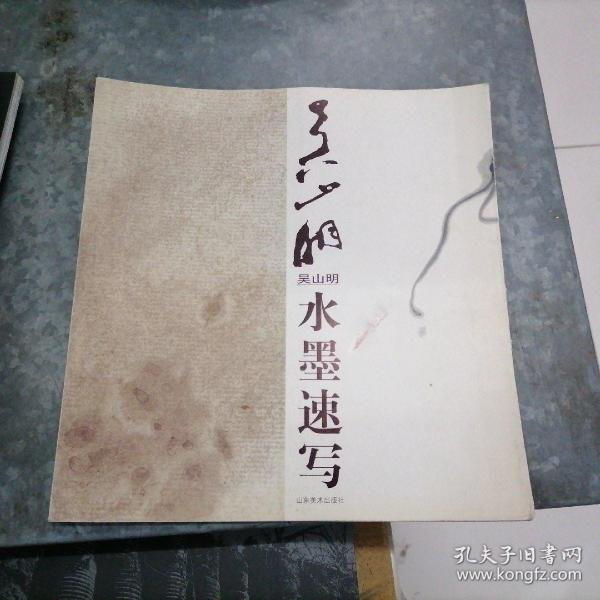 吴山明
吴山明
水墨速写
山东美术出版社
孔夫子旧书网
www.kongfz.com